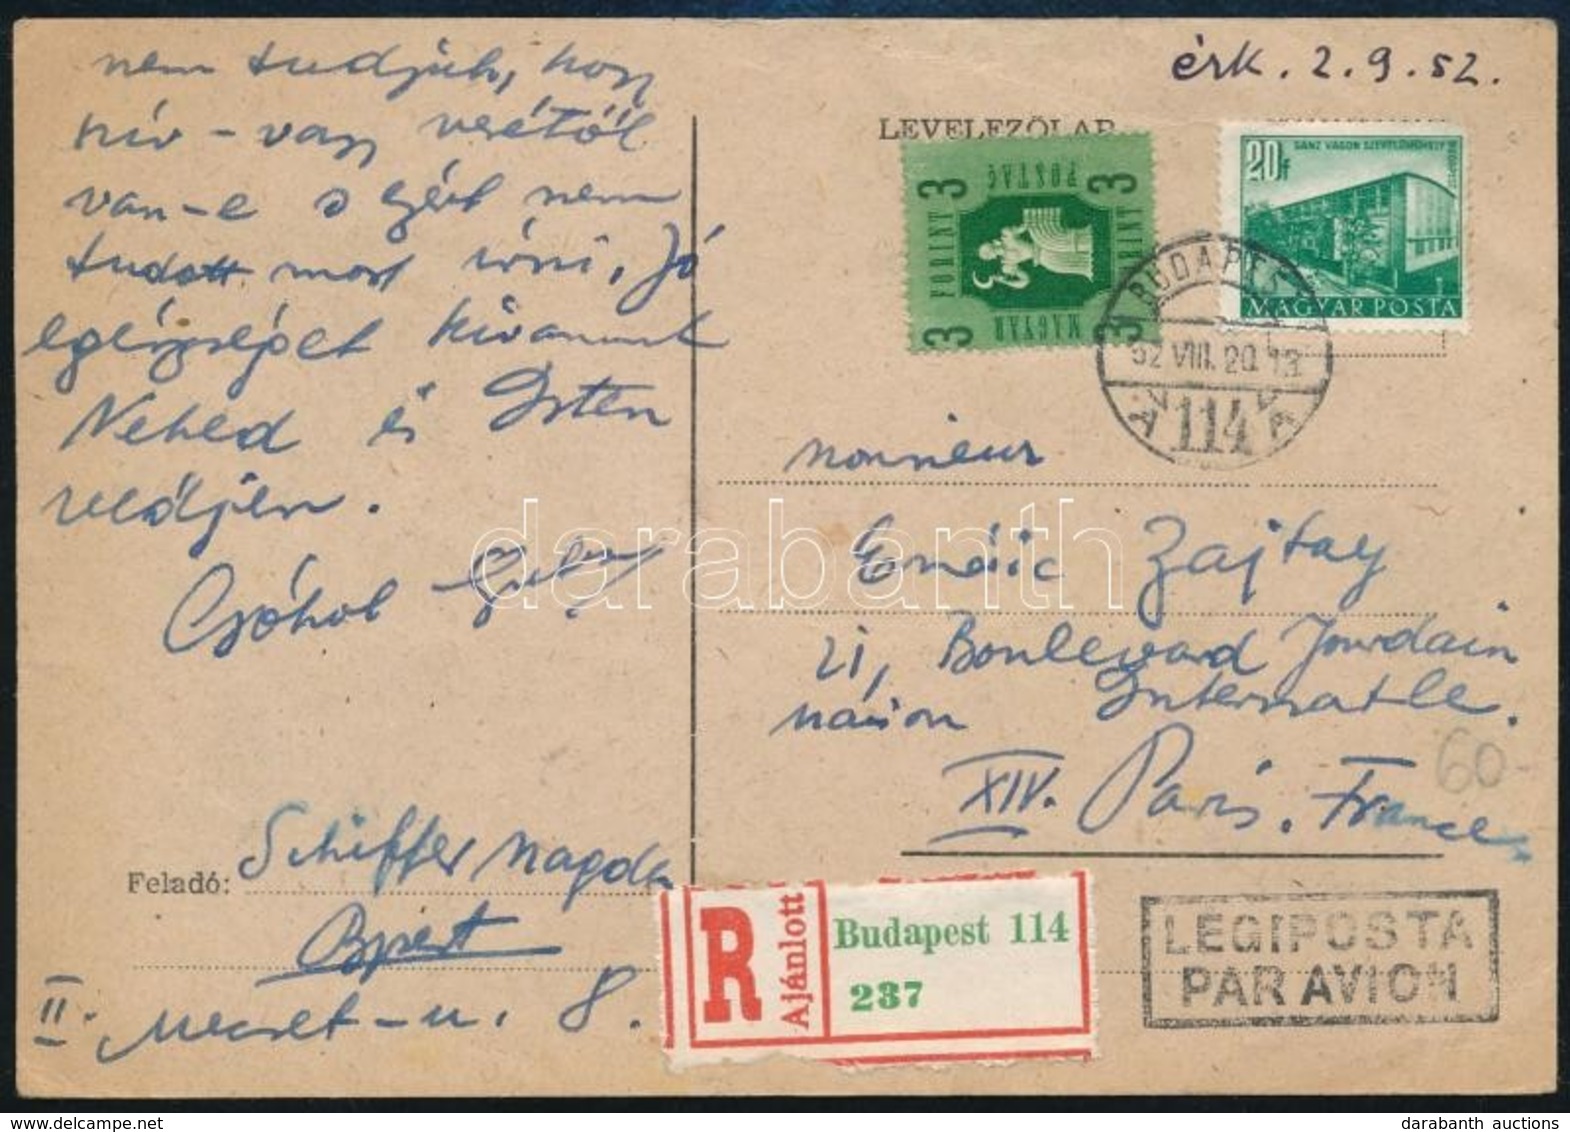 érk. 2.9.52.
nem tudjuk, hogy
hív - vagy vezétől
van-e s ezért nem
tudott most írni, Jó
egészséget kívánunk
Neked és Isten
védjen.
Csókol
Feladó: Schiffer Magda
Bpest
II. Mecset-u. 8.
LEVELEZŐLAP
3 FORINT 3
MAGYAR POSTA
20f
GANZ VAGON SZERELŐMŰHELY BUDAPEST
MAGYAR POSTA
BUDAPEST
52 VIII. 20. 13
114
Monsieur
Eméric Zajtay
21, Boulevard Jourdain
Maison Internatle.
XIV. Paris. France
60-
R Ajánlott
Budapest 114
237
LEGIPOSTA
PAR AVION
darabanth
darabanth auctions